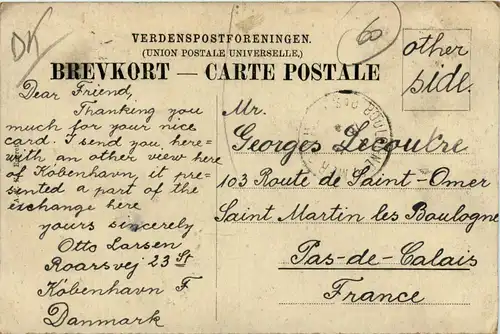 DK
60
VERDENSPOSTFORENINGEN.
(UNION POSTALE UNIVERSELLE,)
BREVKORT — CARTE POSTALE
other
side.
Dear Friend,
Thanking you
much for your nice
card. I send you here=
with an other view here
of København, it pre=
sented a part of the
exchange here
yours sincerely
Otto Larsen
Roarsvej 23 St
København F
Danmark
Mr.
Georges Lecoutre
103 Route de Saint-Omer
Saint Martin les Boulogne
Pas-de-Calais
France